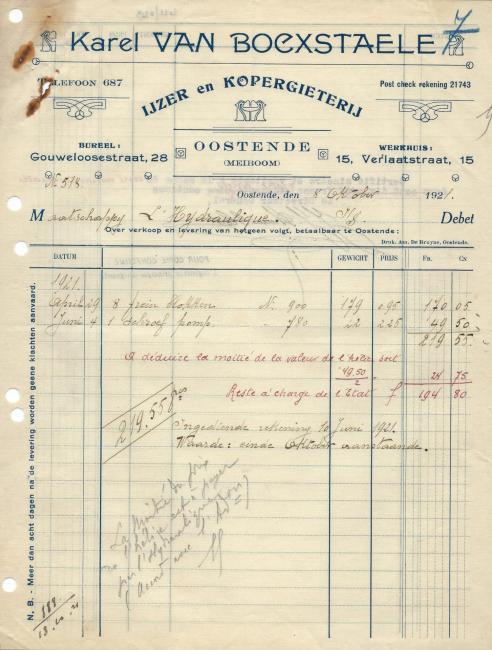 7
Karel VAN BOCXSTAELE
TELEFOON 687
Post check rekening 21743
IJZER en KOPERGIETERIJ
BUREEL:
Gouweloosestraat, 28
OOSTENDE
(MEIBOOM)
WERKHUIS:
15, Verlaatstraat, 15
Oostende, den 8 Oktober 1921.
Maatschappy L'Hydraulique. Debet
Over verkoop en levering van hetgeen volgt, betaalbaar te Oostende:
Druk. Aug. De Bruyne, Oostende.
DATUM GEWICHT PRIJS FR. CN
1921.
April 29 8 frein blokken N. 900 179 0.95 170 05
Juni 4 1 schroef pomp. - 780 22 2.25 49 50
219 55.
A déduire la moitié de la valeur de l'hélice soit
49,50
2
24 75
Reste à charge de l'Etat f 194 80
219.55 frcs
Ingediende rekening 10 Juni 1921.
Waarde: einde Oktober aanstaande.
La moitié du prix
de l'hélice est à payer
par l'Hydraulique
N. B. - Meer dan acht dagen na de levering worden geene klachten aanvaard.